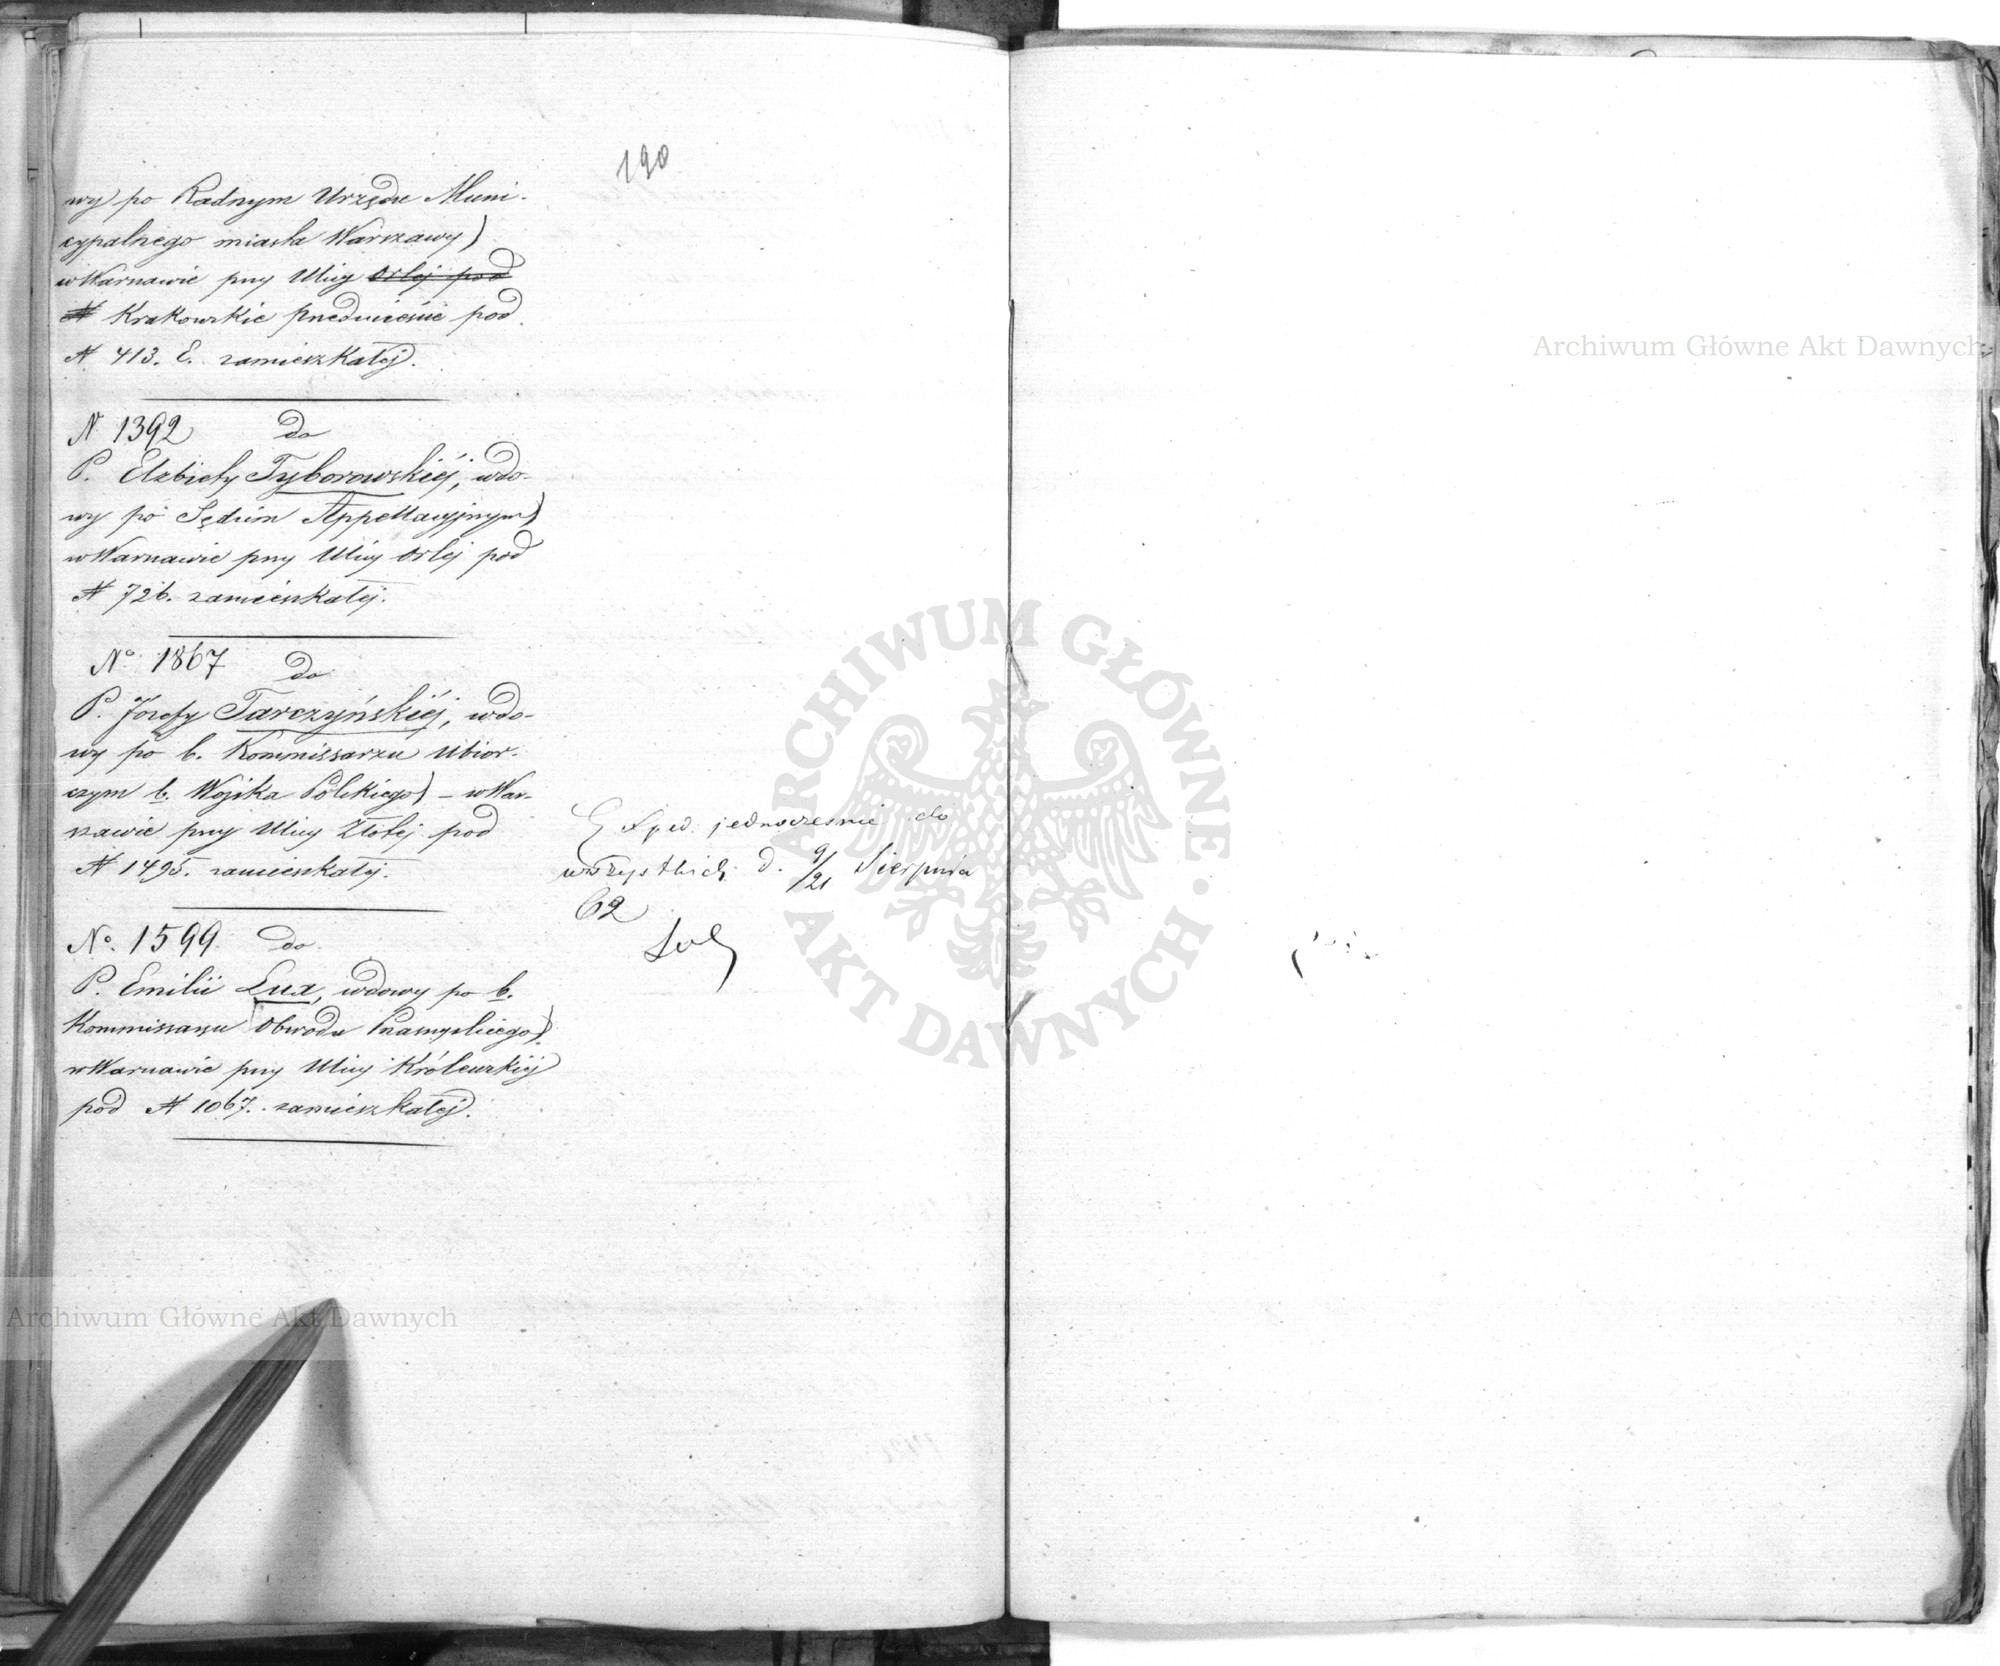 190
wy po Radnym Urzędu Muni-
cypalnego miasta Warszawy)
w Warszawie przy Ulicy Orlej pod
N Krakowskie przedmieście pod
N 413. E. zamieszkałej.
N 1392 do
P. Elżbiety Tyborowskiéj, wdo-
wy po Sędzim Appellacyjnym)
w Warszawie przy Ulicy Orlej pod
N 726. zamieszkałej.
No 1867 do
P. Józefy Tarczyńskiéj, wdo-
wy po b. Kommissarzu Ubior-
czym b. Wojska Polskiego) – w War-
szawie przy Ulicy Złotej pod
N 1495. zamieszkałej.
No. 1599 do
P. Emilii Lux, wdowy po b.
Kommissarzu Obwodu Przasnyskiego)
w Warszawie przy Ulicy Królewskiéj
pod N 1067. zamieszkałej.
Exped. jednocześnie do
wszystkich d. 9/21 Sierpnia
62
Archiwum Główne Akt Dawnych
ARCHIWUM GŁÓWNE
AKT DAWNYCH
Archiwum Główne Akt Dawnych